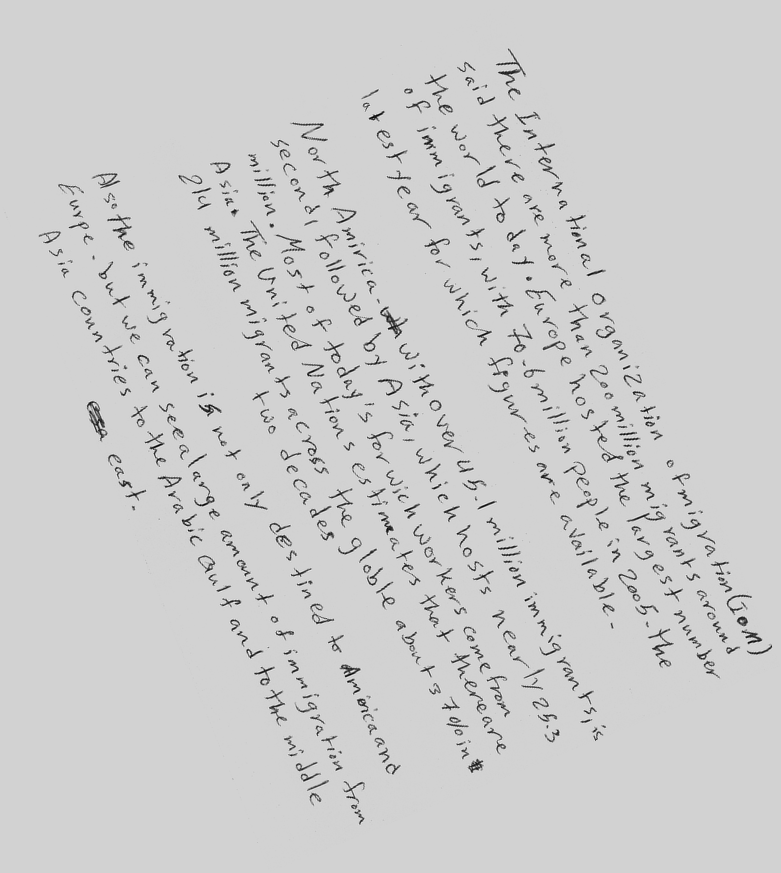 The International organization of migration (IOM)
said there are more than 200 million migrants around
the world to day. Europe hosted the largest number
of immigrants, with 70.6 million people in 2005. the
latest year for which figures are available.
North Amirica. with over 45.1 million immigrants, is
second followed by Asia, which hosts nearly 25.3
million. Most of today is for wich workers come from
Asia. The United Nations estimeates that there are
214 million migrants across the globle about 37% in
two decades
Also the immigration is not only destined to America and
Eurpe. but we can see a large amount of immigration from
Asia countries to the Arabic Gulf and to the middle
east.